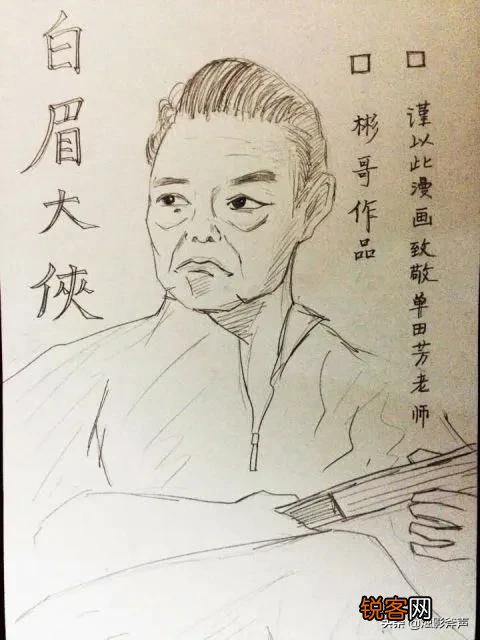 白眉大俠
□ 谨以此漫画致敬单田芳老师
□ 彬哥作品
锐客网
头条@湿影斧声